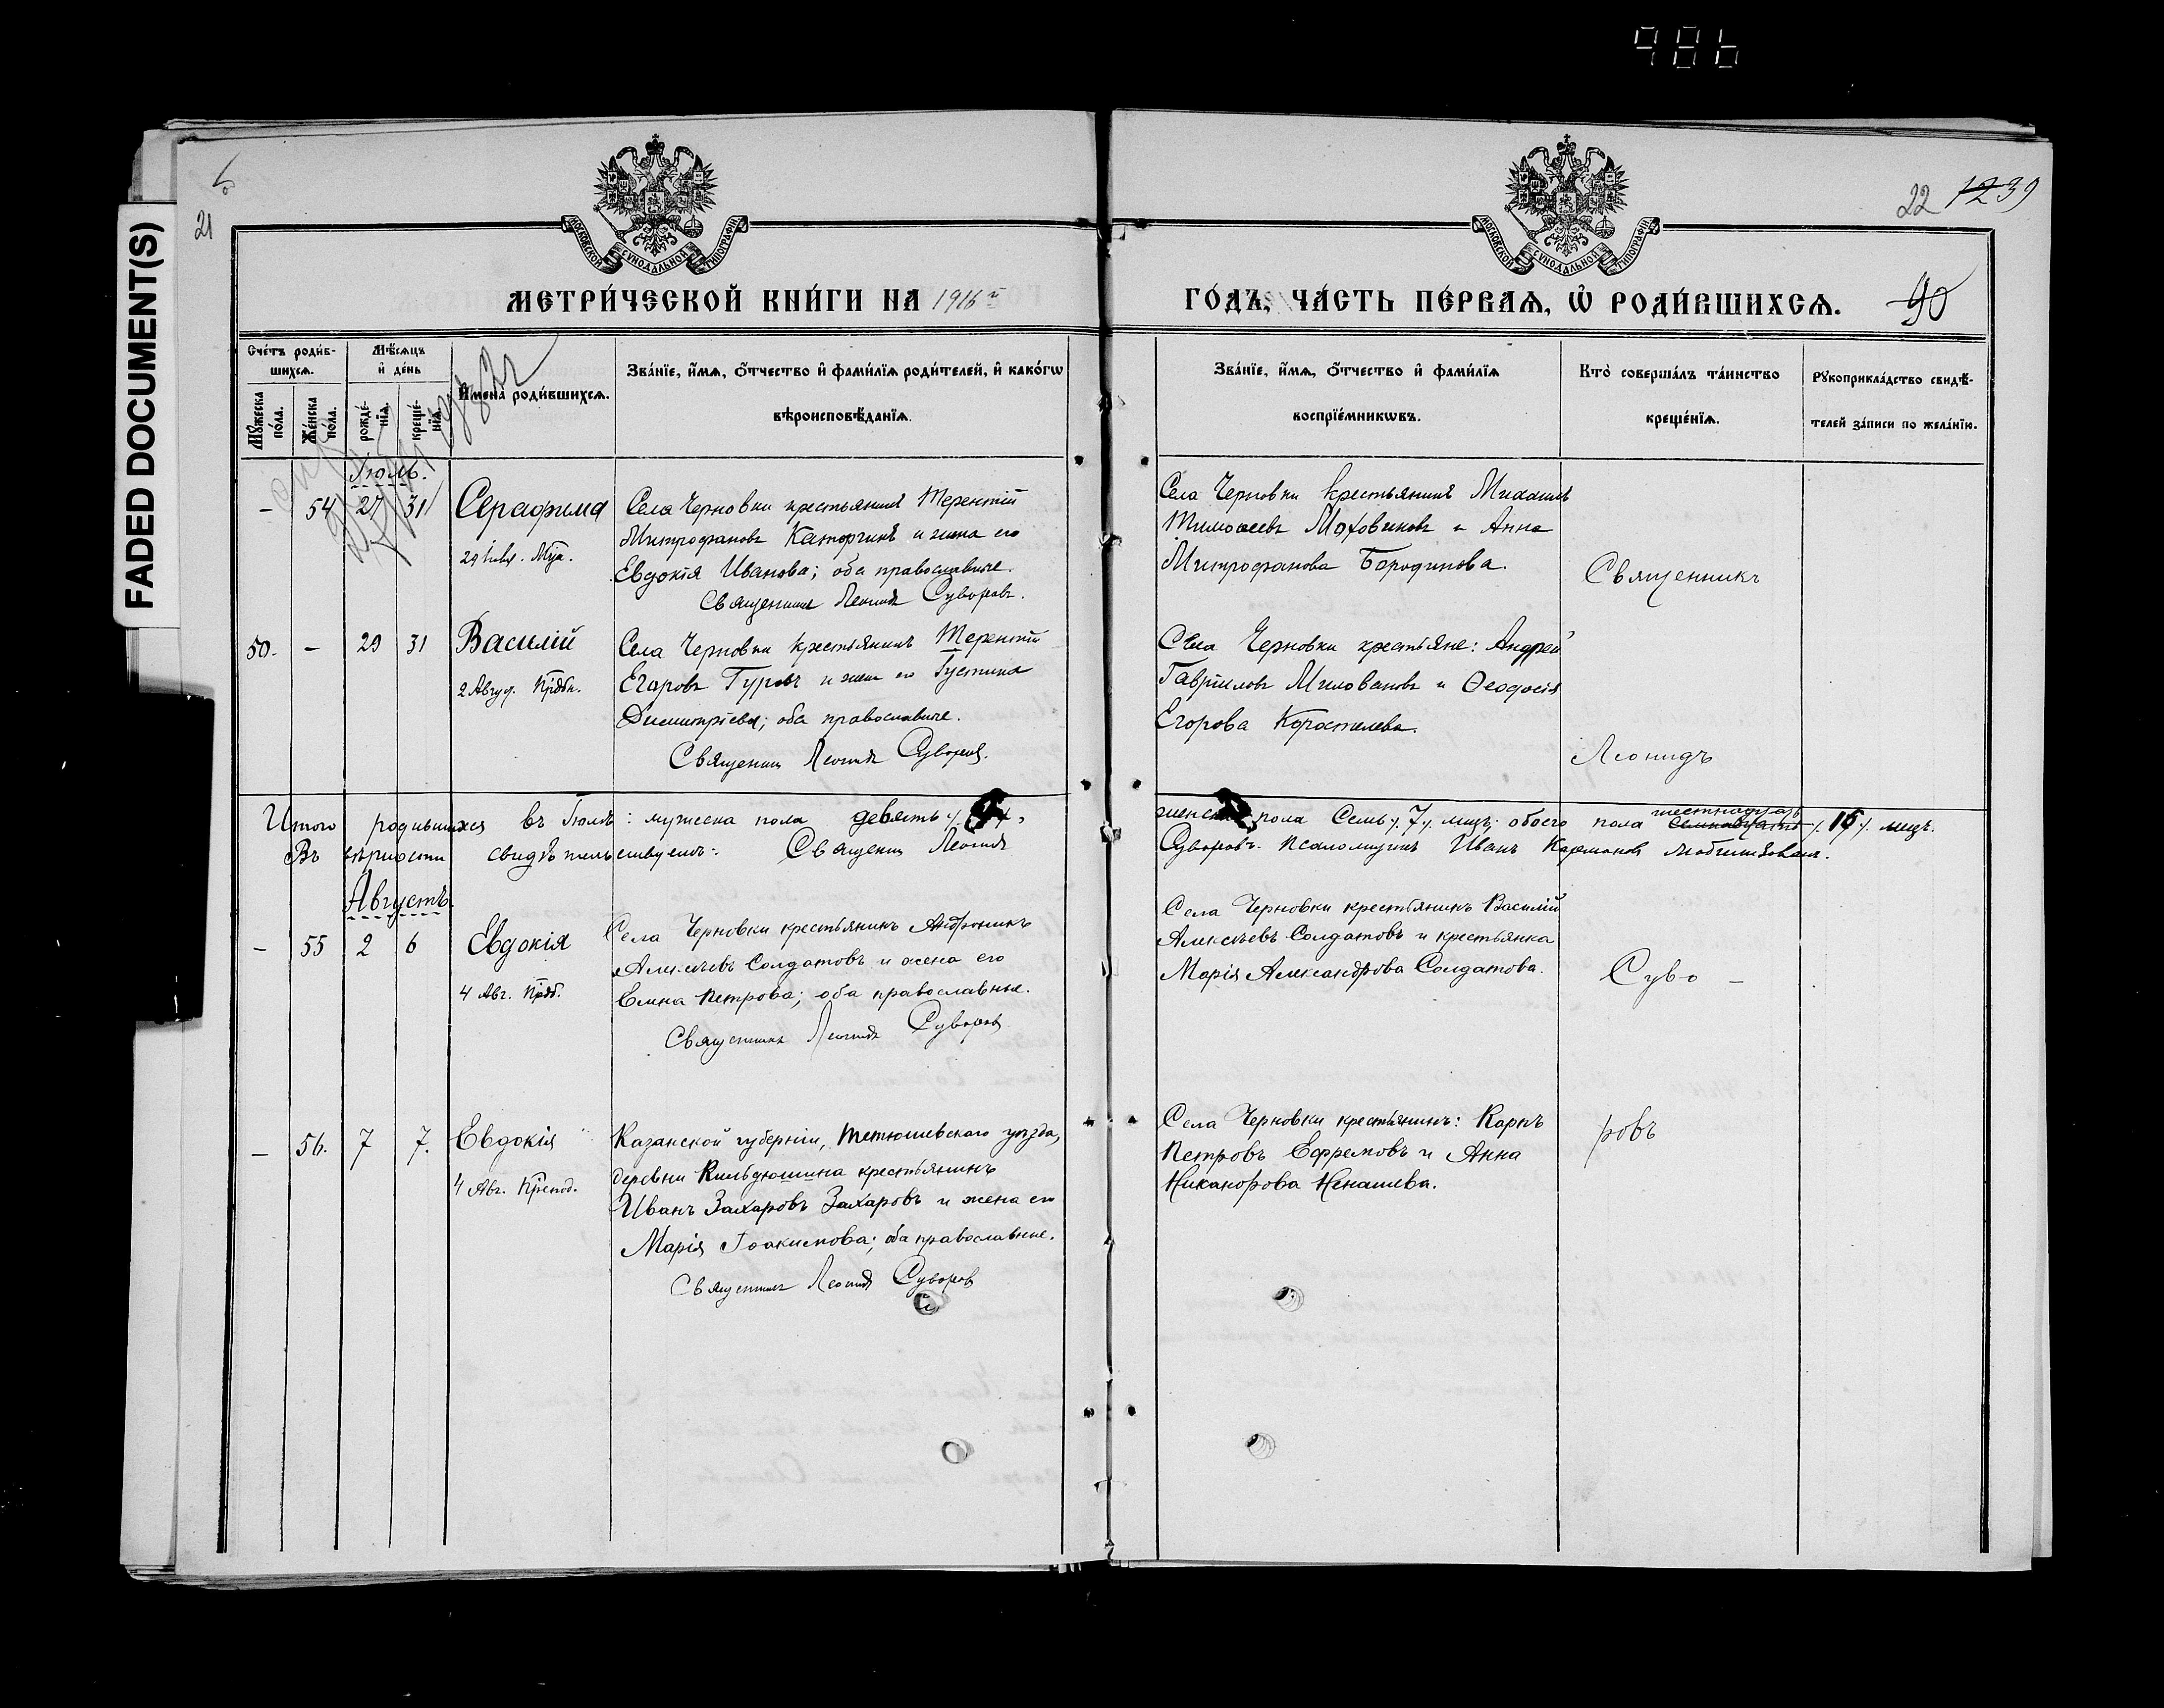 986
FADED DOCUMENT(S)
21
22 1239
90
МОСКОВСКОЙ СѴНОДАЛЬНОЙ ТИПОГРАФІИ
МОСКОВСКОЙ СѴНОДАЛЬНОЙ ТИПОГРАФІИ
МЕТРИ́ЧЕСКОЙ КНИ́ГИ НА 1916 й
ГО́ДЪ, ЧА́СТЬ ПЕ́РВАѦ, Ѡ҆ РОДИ́ВШИХСѦ.
Сче́тъ роди́в-
шихсѧ.
Мꙋ́жеска по́ла.
Же́нска по́ла.
Мѣ́сѧцъ
и҆ де́нь
рожде́-нїѧ.
креще́-нїѧ.
И҆мена̀ роди́вшихсѧ.
Зва́нїе, и҆́мѧ, ѻ҆́тчество и҆ фами́лїѧ роди́телей, и҆ како́гѡ
вѣроисповѣ́данїѧ.
Зва́нїе, и҆́мѧ, ѻ҆́тчество и҆ фами́лїѧ
воспрїе́мникѡвъ.
Кто̀ соверша́лъ та́инство
креще́нїѧ.
Рꙋкоприкла́дство свидѣ́-
телей за́писи по жела́нїю.
Іюль.
– 54 27 31 Серафима
29 Іюля. Муч.
Села Черновки крестьянинъ Терентій
Митрофановъ Каторгинъ и жена его
Евдокія Иванова; оба православные.
Священникъ Леонидъ Суворовъ.
Села Черновки крестьянинъ Михаилъ
Тимоѳеевъ Маховиковъ и Анна
Митрофанова Бородинова.
Священникъ
50. – 29 31 Василій
2 Август. Прдбн.
Села Черновки крестьянинъ Терентій
Егоровъ Гуровъ и жена его Іустина
Димитріева; оба православные.
Священникъ Леонидъ Суворовъ.
Села Черновки крестьяне: Андрей
Гавріиловъ Миловановъ и Ѳеодосія
Егорова Коростелева.
Леонидъ
Итого родившихся въ Іюлѣ: мужеска пола девять
женска пола семь ⁒ 7 ⁒ лицъ; обоего пола семнадцать шестнадцать ⁒ 16 ⁒ лицъ.
Въ вѣрности свидѣтельствуемъ: Священникъ Леонидъ
Суворовъ. Псаломщикъ Иванъ
Августъ.
– 55 2 6 Евдокія
4 Авг. Прдб.
Села Черновки крестьянинъ Андроникъ
Алексѣевъ Солдатовъ и жена его
Елена Петрова; оба православные.
Священникъ Леонидъ Суворовъ
Села Черновки крестьянинъ Василій
Алексѣевъ Солдатовъ и крестьянка
Марія Александрова Солдатова.
Суво –
– 56. 7 7. Евдокія
4 Авг. Препод.
Казанской губерніи, Тетюшевскаго уѣзда,
деревни Кильдюшина крестьянинъ
Иванъ Захаровъ Захаровъ и жена его
Марія Іоакимова; оба православные.
Священникъ Леонидъ Суворовъ
Села Черновки крестьянинъ: Карпъ
Петровъ Ефремовъ и Анна
Никанорова Ненашева.
ровъ